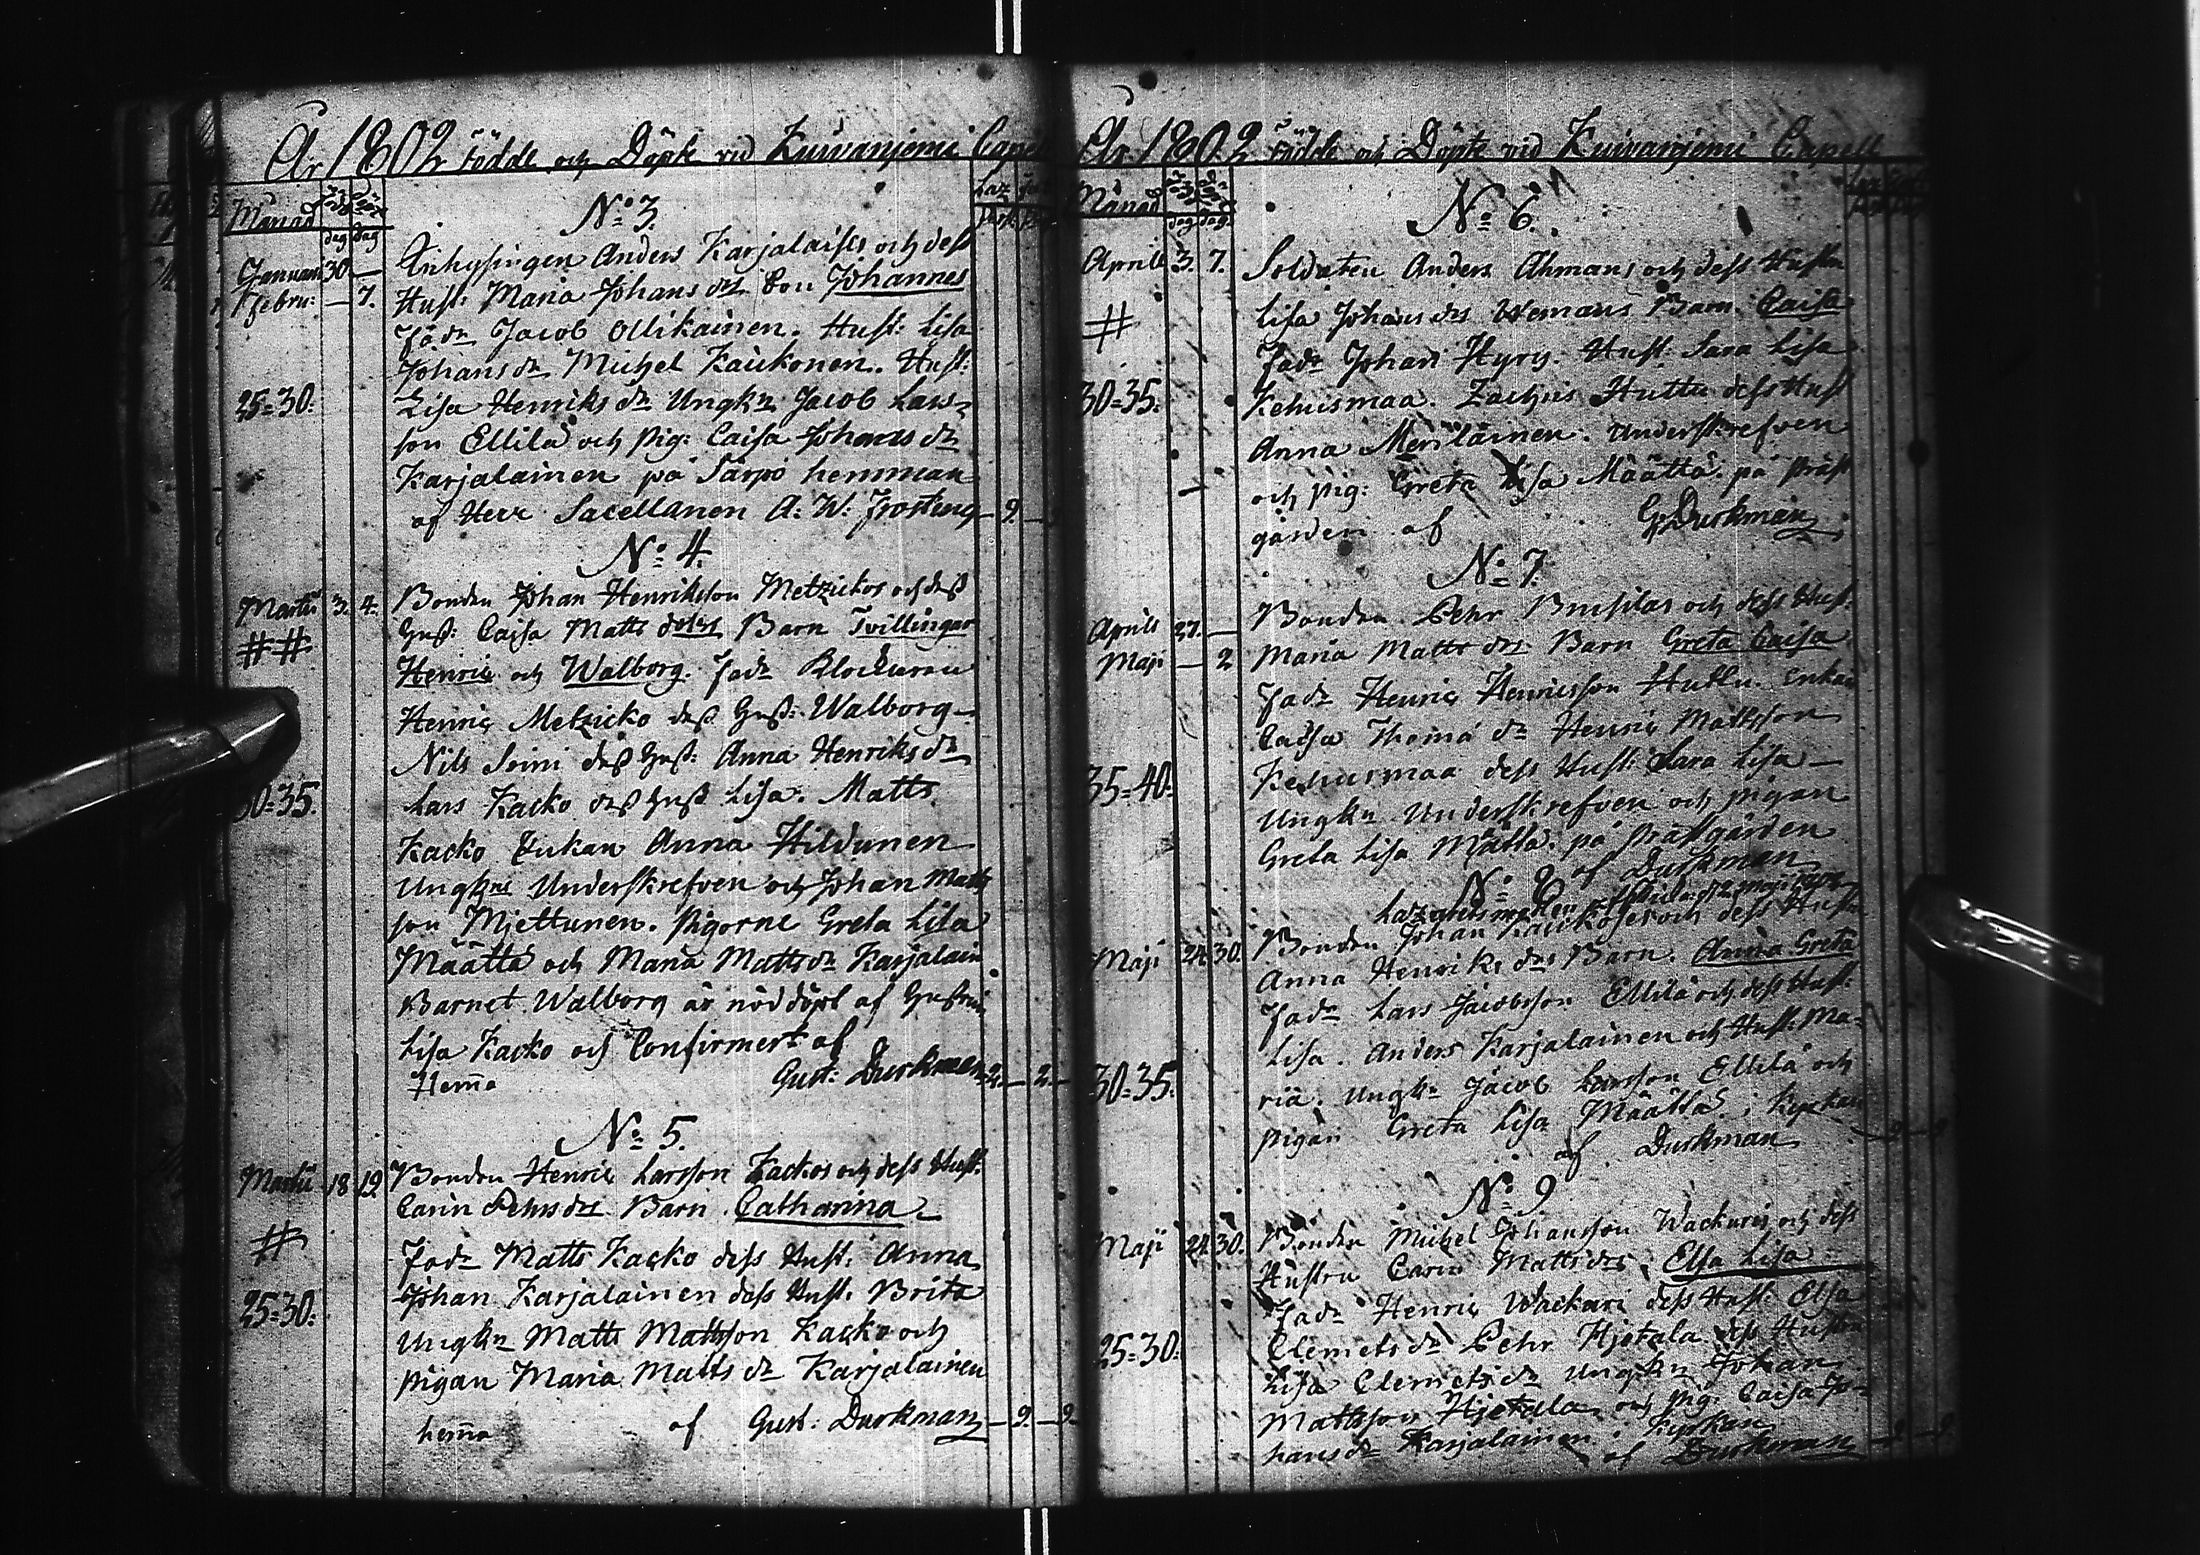 År 1802 födde och Döpte vid Kuivanjemi Capell
Månad
dag dag
N:o 3.
Januari 30 — Inhysingen Anders Karjalaises och dess
Febru: — 7. Hust: Maria Johans drs Son Johannes
Fadr Jacob Ollikainen. Hust: Lisa
Johans dr Michel Kaickonen. Hust:
25=30. Lisa Henriks dr Ungkn Jacob Lars-
son Ellilä och pig: Caisa Johans dr
Karjalainen på Särpö hemman
af Herr Sacellanen A: W: — 9. —
N:o 4.
Martii 3. 4. Bonden Johan Henriksson Metzickos och dess
## Hust: Caisa Matts doters Barn Tvillingar
Henric och Walborg. Fadr Klockaren
Henric Metzicko dess Hust: Walborg
Nils Soini dess Hust: Anna Henriks dr
30=35. Lars Kacko dess Hust Lisa. Matts
Kacko Enkan Anna Hildunen
Ungkne Underskrefven och Johan Matts
son Mjettunen. Pigorne Greta Lisa
Määttä och Maria Matts dr Karjalain
Barnet Walborg är nöd döpt af Hustru
Lisa Kacko och Confirmert af
Hemma Gust: Durkman 2. — 2. —
N:o 5.
Martii 18 19. Bonden Henric Larsson Kackos och dess Hust:
Carin Pehrs drs Barn Catharina
# Fadr Matts Kacko dess Hust: Anna
Johan Karjalainen dess Hust: Brita
25=30. Ungkn Matts Mattsson Kacko och
pigan Maria Matts dr Karjalainen
hemma af Gust: Durkman — 9. — 9.
År 1802 födde och Döpte vid Kuivanjemi Capell
Månad
dag dag
N:o 6.
Aprill 3. 7. Soldaten Anders Ahmans och dess Hustru
# Lisa Johans drs Wemans Barn. Caisa
Fadr Johan Hyry. Hust: Sara Lisa
30=35. Kehusmaa. Zachris Huttu dess Hust
Anna Meriläinen. Underskrefven
och pig: Greta Lisa Määttä. på präst
gården af G: Durkman
N:o 7.
Aprils 27. — Bonden Pehr Busilas och dess Hust:
Maji — 2 Maria Matts drs Barn Greta Caisa
Fadr Henric Henricsson Huttu. Enkan
Caisa Thoma dr Henric Mattsson
35=40. Kehusmaa dess Hust: Sara Lisa
Ungkn Underskrefven och pigan
Greta Lisa Mättä. på prästgården
af Durkman
N:o 8
Maji 24. 30. Bonden Johan och dess Hustru
Anna Henriks drs Barn. Anna Greta
Fadr Lars Jacobsson Ellilä och dess Hust:
Lisa. Anders Karjalainen och Hust: Ma-
30=35. ria. Ungkn Jacob Larsson Ellilä och
pigan Greta Lisa Määttä. i Kyrkan
af Durkman
N:o 9
Maji 24. 30. Bonden Michel Johansson Wackuris och dess
Hustru Carin Matts drs. Elsa Lisa
Fadr Henric Wackari dess Hust: Elsa
25=30. Clemets dr Pehr Hjetala dess Hustru
Lisa Clemets dr Ungkn Johan
Mattsson Hjetala och pig: Caisa Jo-
hans dr Karjalainen i Kyrkan
af Durkman